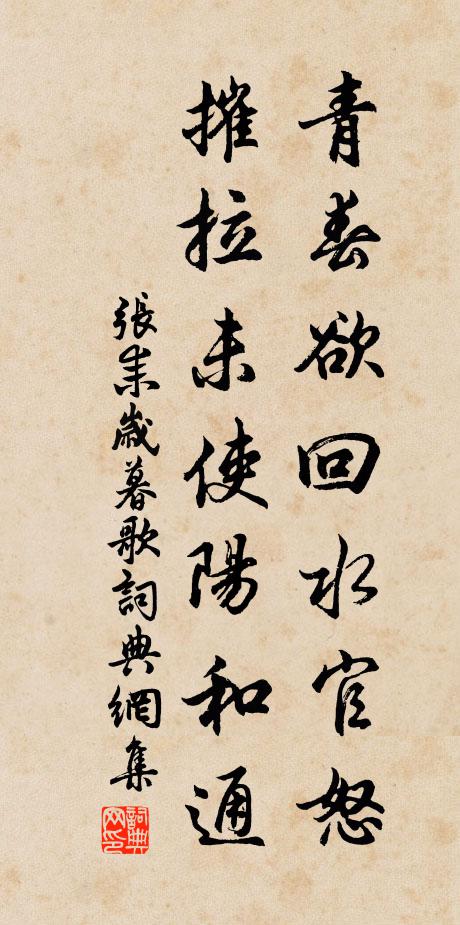 青春欲回水官怒
摧拉未使陽和通
張耒歲暮歌詞典網集
詞典網印